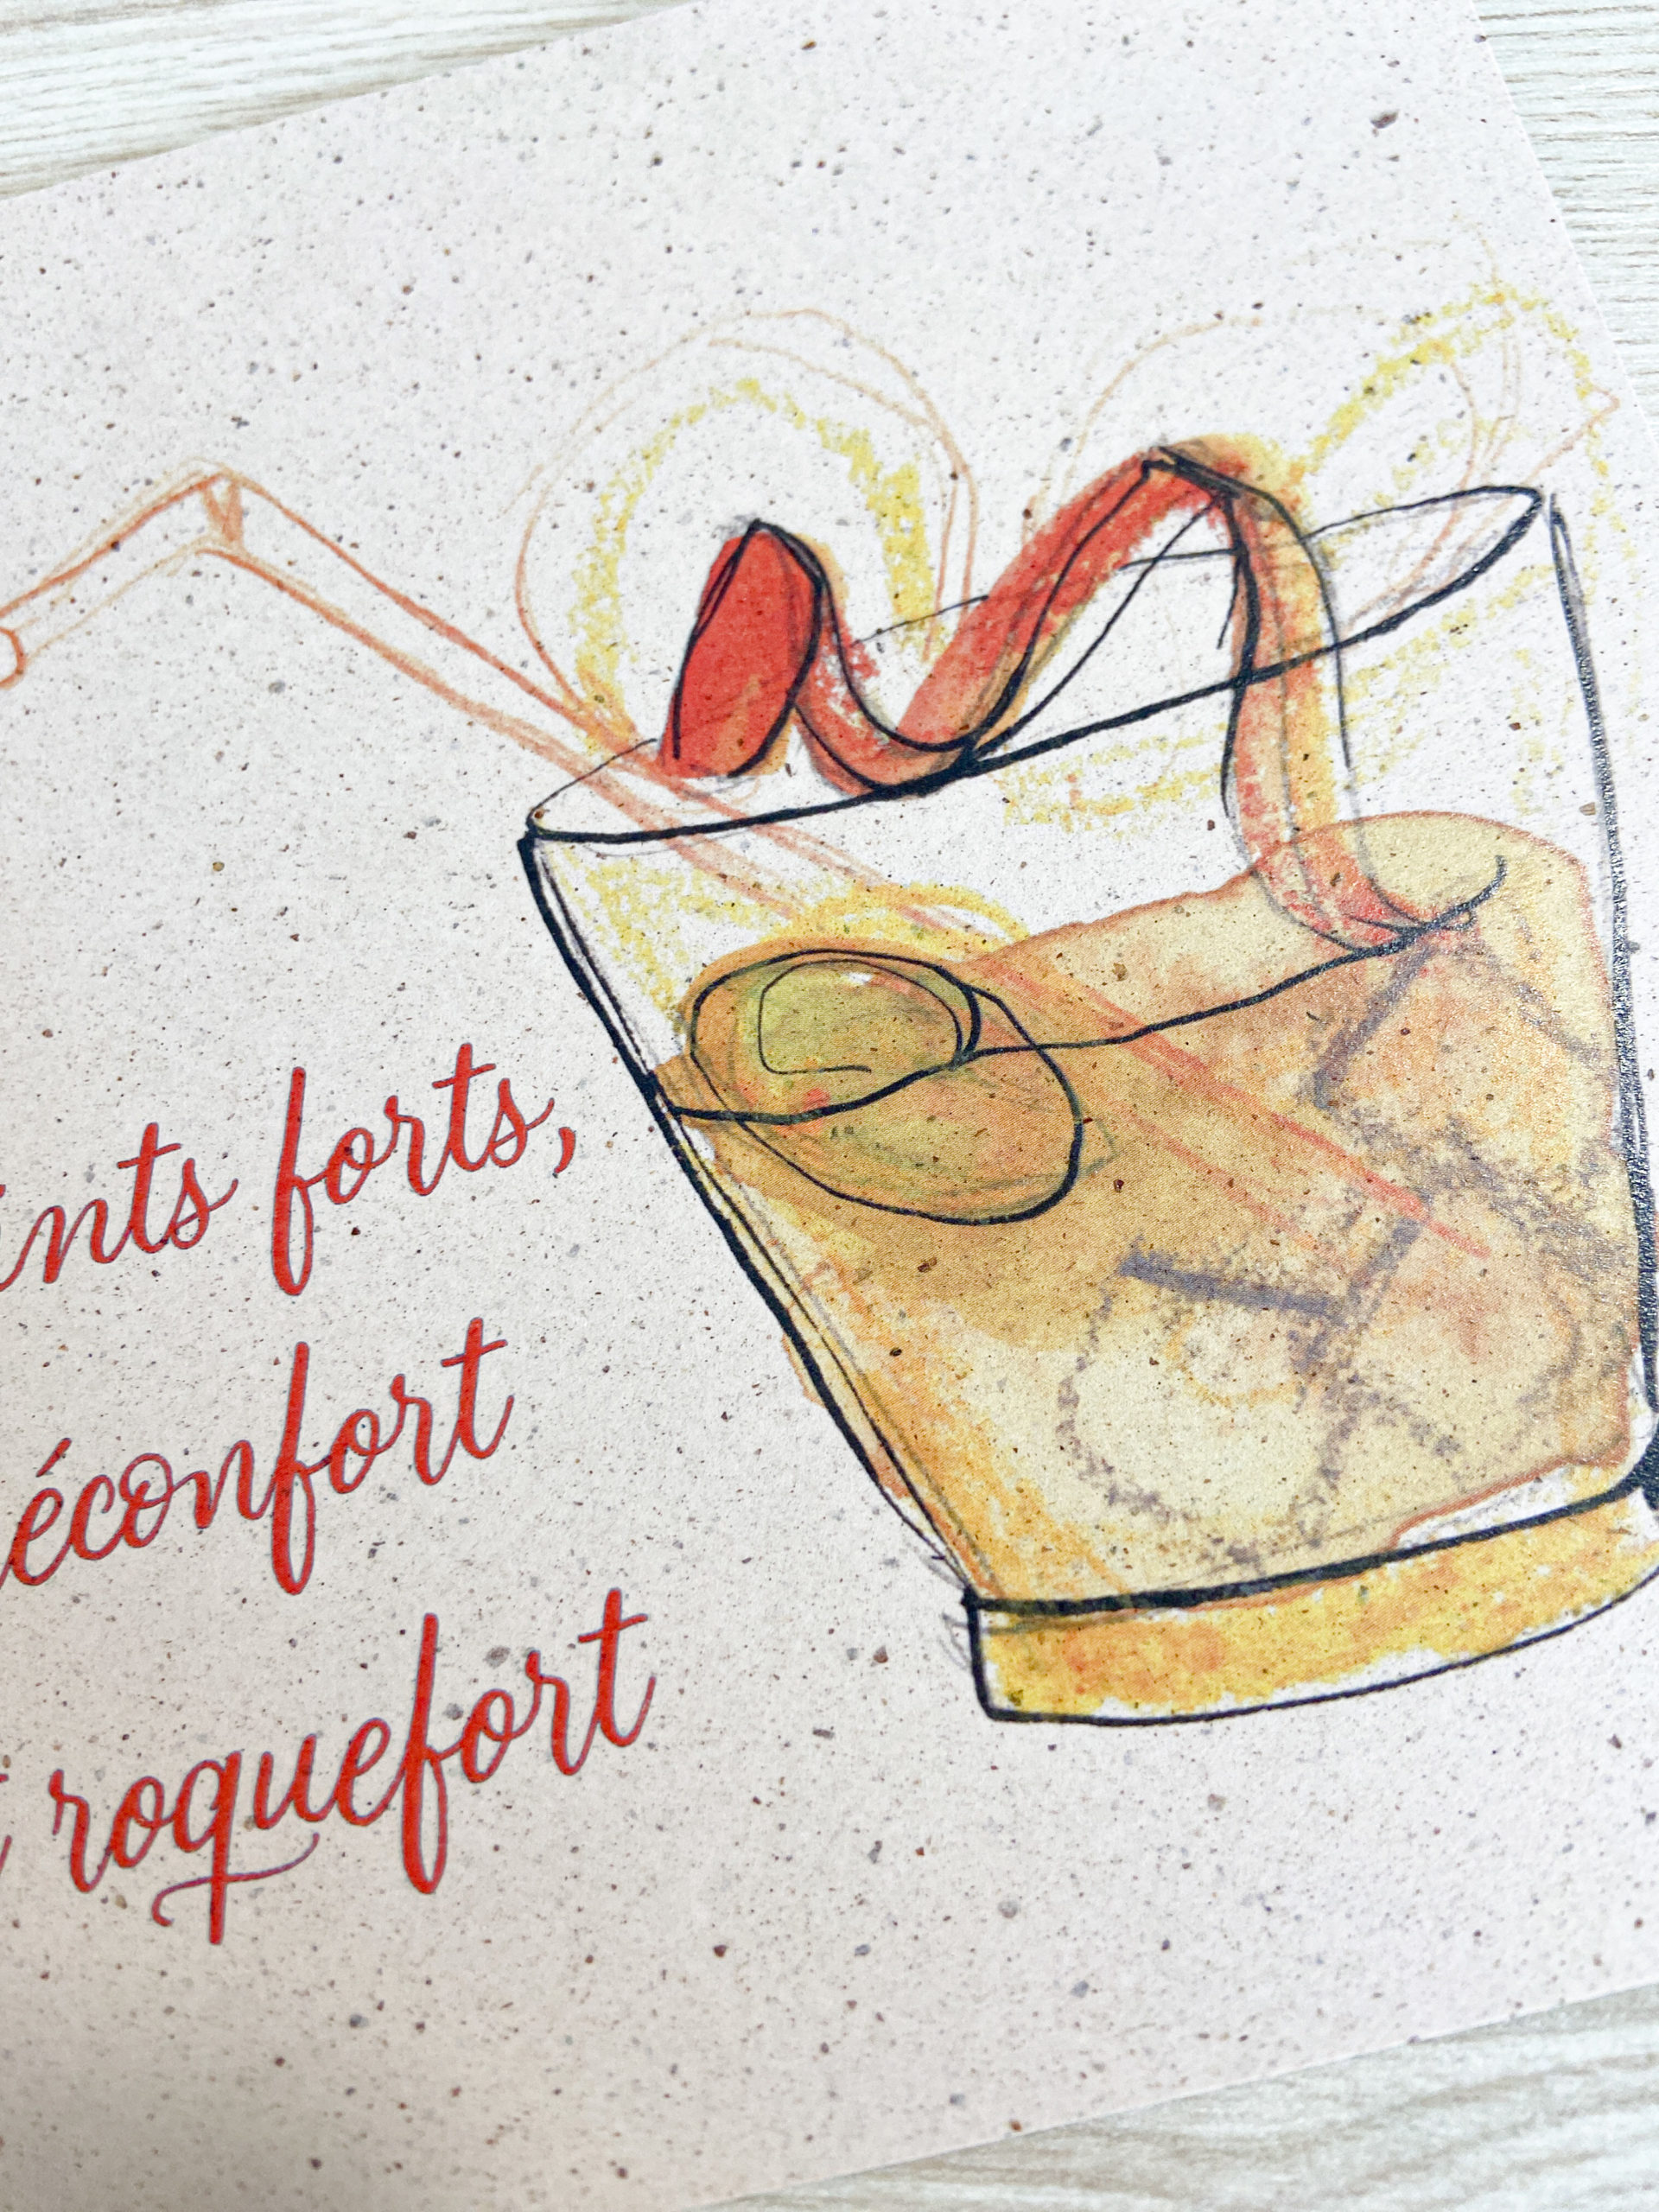 ints forts,
éconfort
roquefort